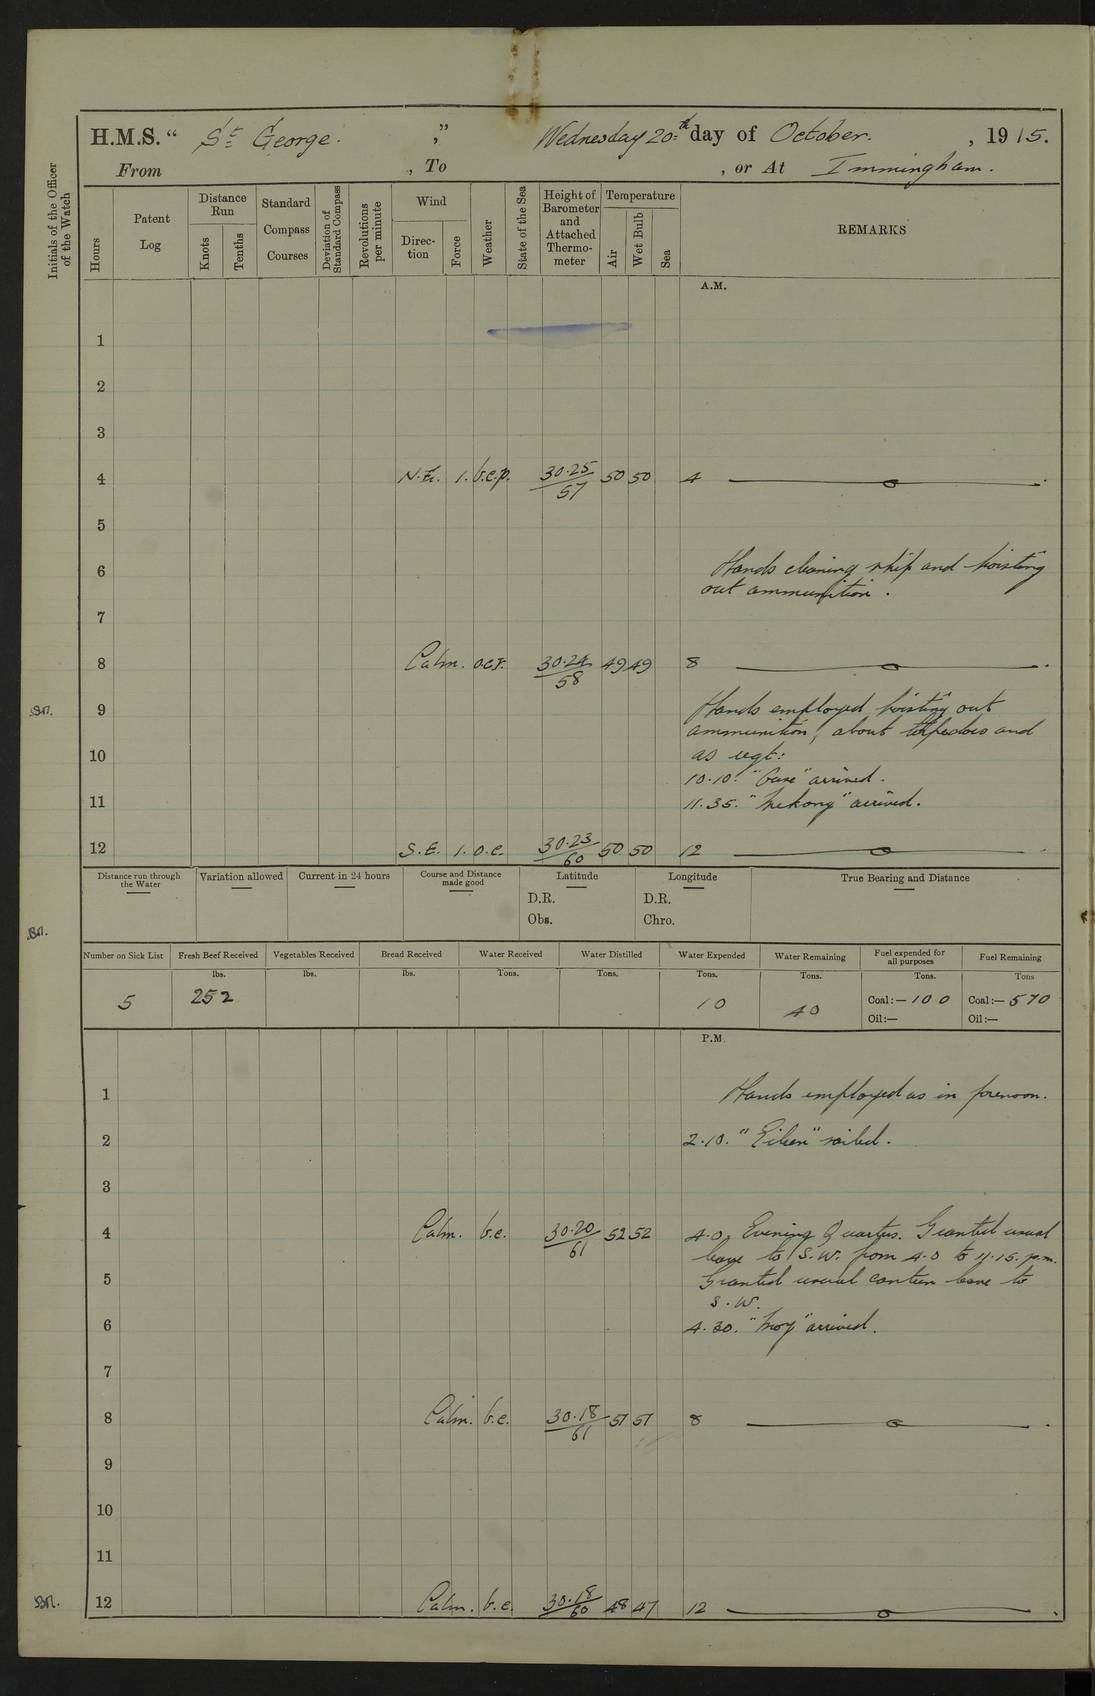 H.M.S. “ St George. ,” Wednesday 20th day of October. , 1915.
From , To , or At Immingham.
Initials of the Officer of the Watch
Hours
Patent Log
Distance Run
Knots
Tenths
Standard Compass Courses
Deviation of Standard Compass
Revolutions per minute
Wind
Direc-tion
Force
Weather
State of the Sea
Height of Barometer and Attached Thermo-meter
Temperature
Air
Wet Bulb
Sea
REMARKS
A.M.
1
2
3
4 N.E. 1. b.c.p. 30.25/57 50 50 4
5
6 Hands cleaning ship and hoisting
out ammunition.
7
8 Calm. o.c.r. 30.24/58 49 49 8
9 Hands employed hoisting out
ammunition, about torpedoes and
10 as reqt:
10.10. arrived.
11 11.35. "Mekong" arrived.
12 S.E. 1. o.c. 30.23/60 50 50 12
Distance run through the Water
Variation allowed
Current in 24 hours
Course and Distance made good
Latitude
D.R.
Obs.
Longitude
D.R.
Chro.
True Bearing and Distance
Number on Sick List
Fresh Beef Received
Vegetables Received
Bread Received
Water Received
Water Distilled
Water Expended
Water Remaining
Fuel expended for all purposes
Fuel Remaining
lbs. lbs. lbs. Tons. Tons. Tons. Tons. Tons. Tons
5 252 10 40 Coal:— 100 Coal:— 570
Oil:— Oil:—
P.M.
1 Hands employed as in forenoon.
2 2.10. "Eileen" sailed.
3
4 Calm. b.c. 30.20/61 52 52 4.0. Evening Quarters. Granted usual
leave to S.W. from 4.0 to 11.15. p.m.
5 Granted usual canteen leave to
S.W.
6 4.30. "Moy" arrived.
7
8 Calm. b.c. 30.18/61 51 51 8
9
10
11
12 Calm. b.c. 30.18/60 48 47 12